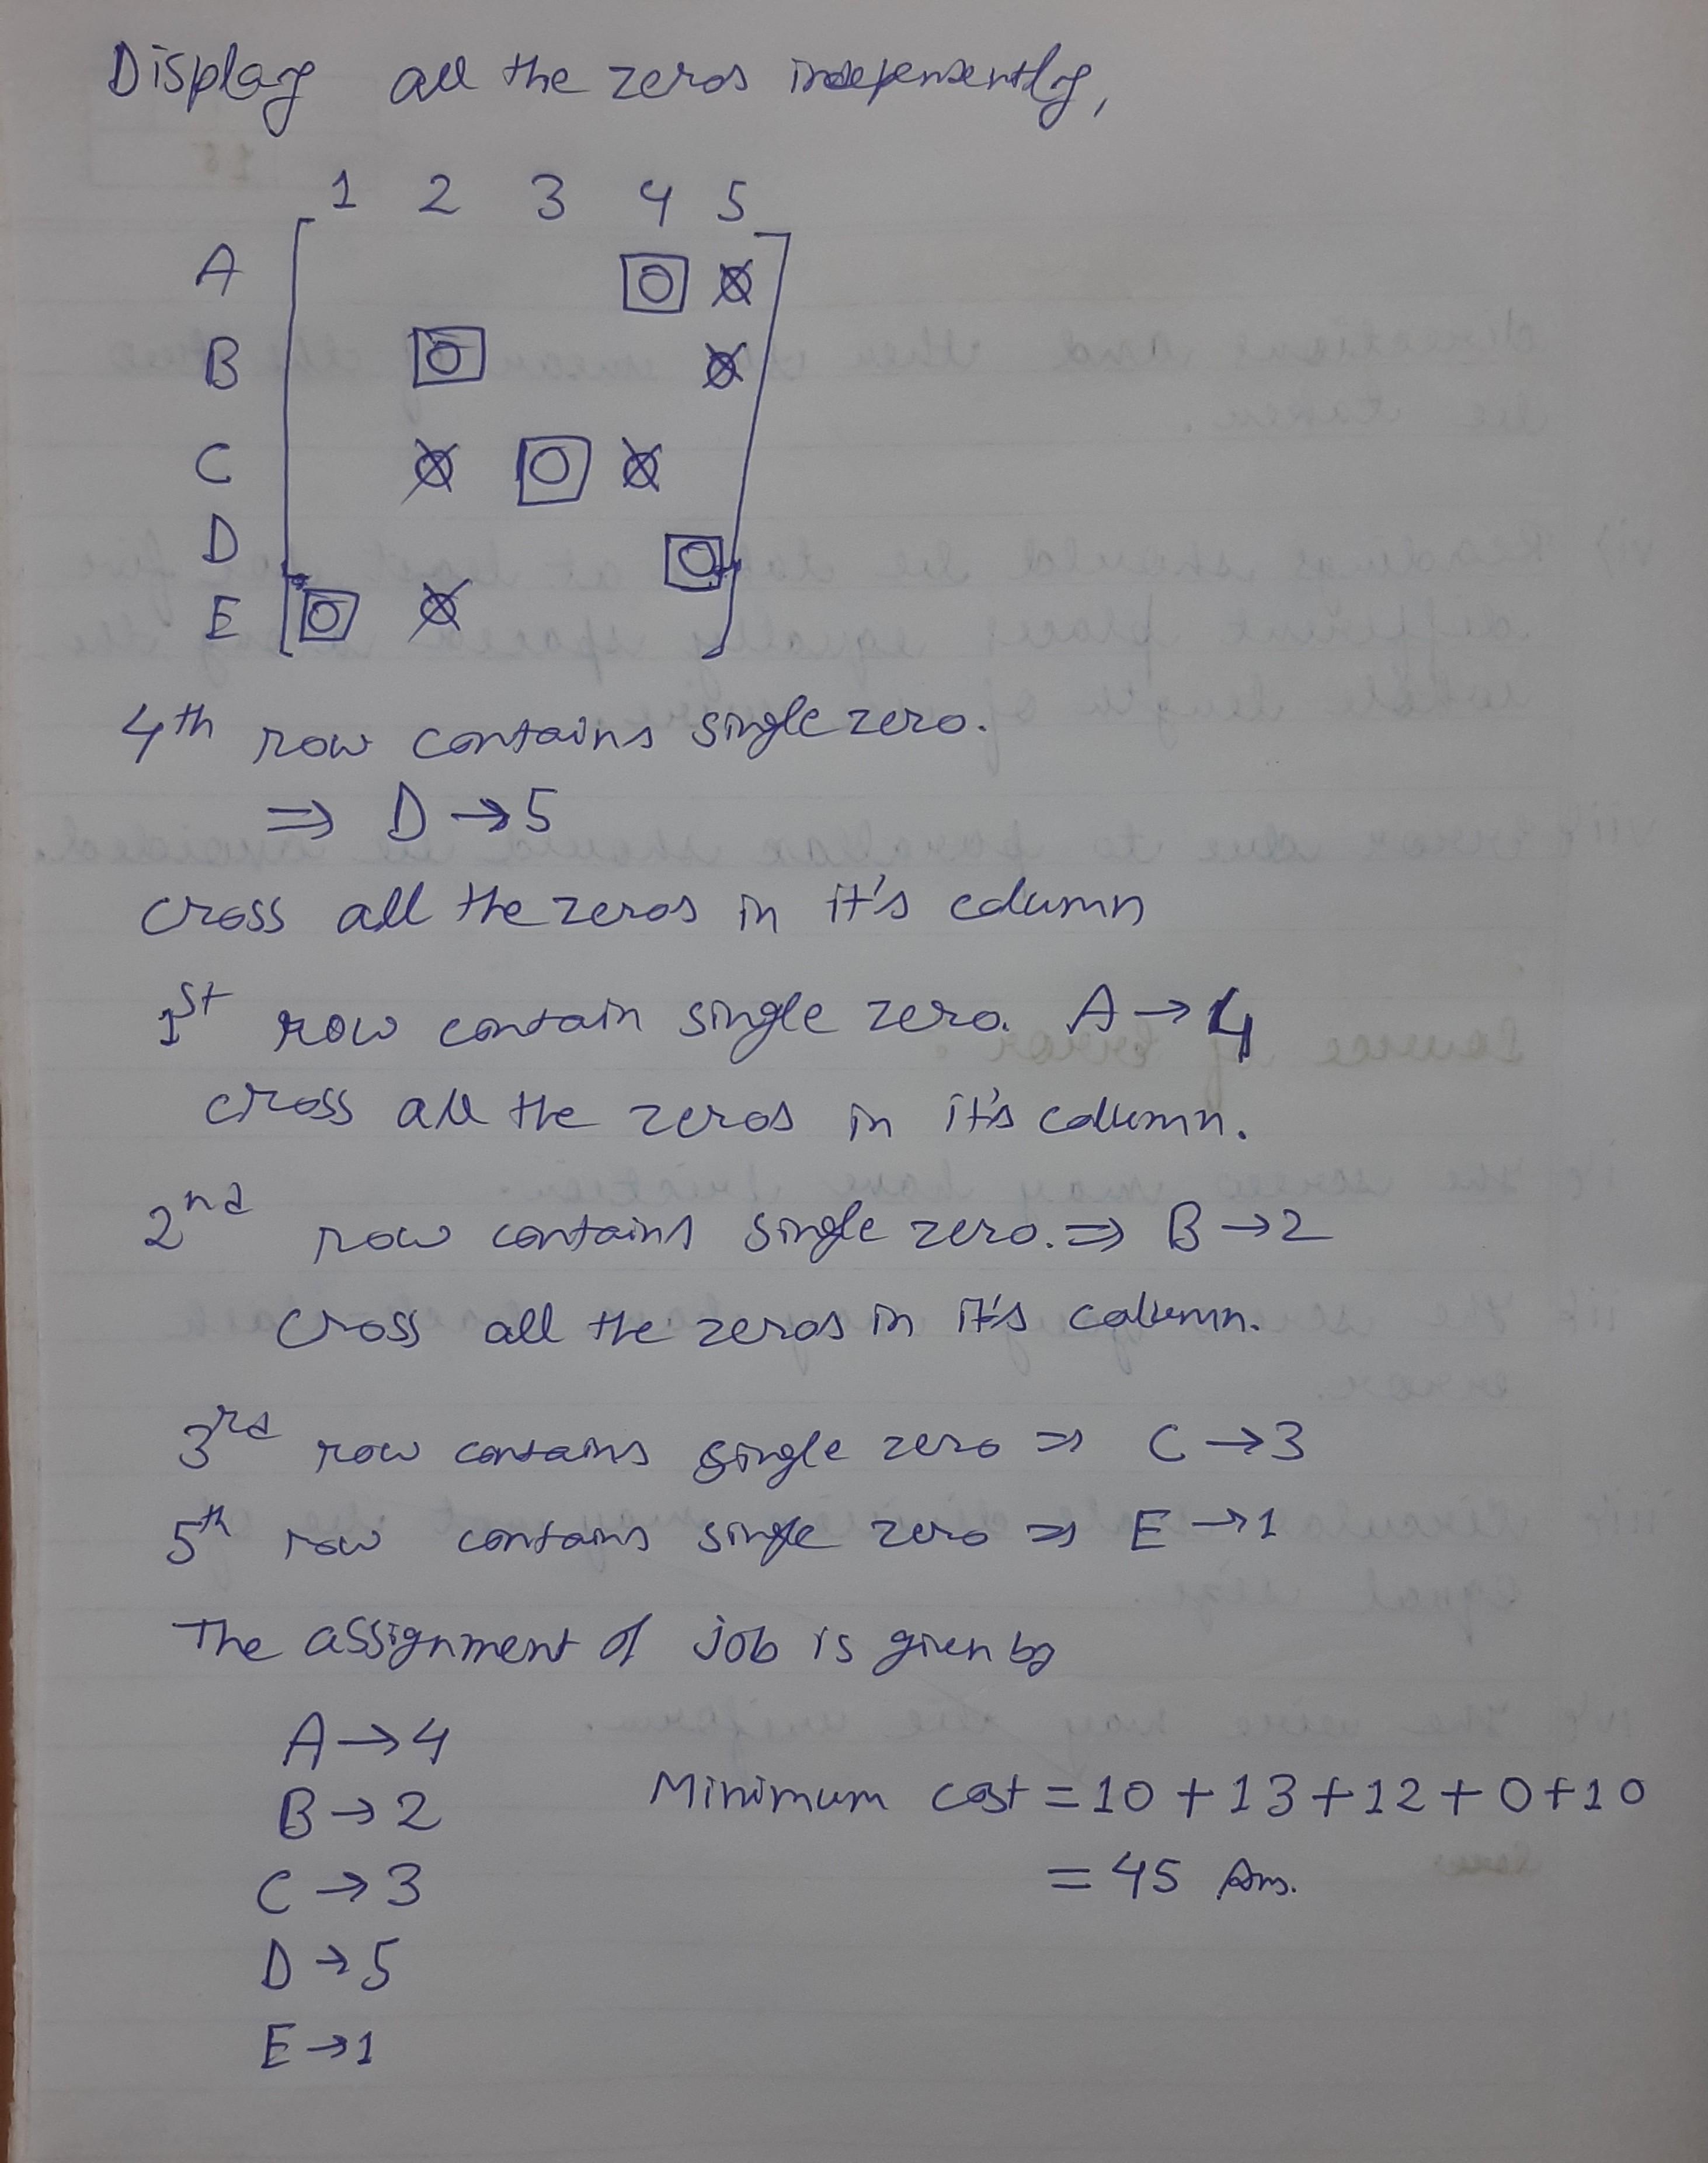 Display all the zeros independently,
1 2 3 4 5
A 0 0
B 0 0
C 0 0 0
D 0
E 0 0
4th row contains single zero.
⇒ D → 5
cross all the zeros in it's column
1st row contain single zero. A → 4
cross all the zeros in it's column.
2nd row contains single zero. ⇒ B → 2
Cross all the zeros in it's column.
3rd row contains single zero ⇒ C → 3
5th row contains single zero ⇒ E → 1
The assignment of job is given by
A → 4
B → 2
Minimum cost = 10 + 13 + 12 + 0 + 10
C → 3
= 45 Ans.
D → 5
E → 1